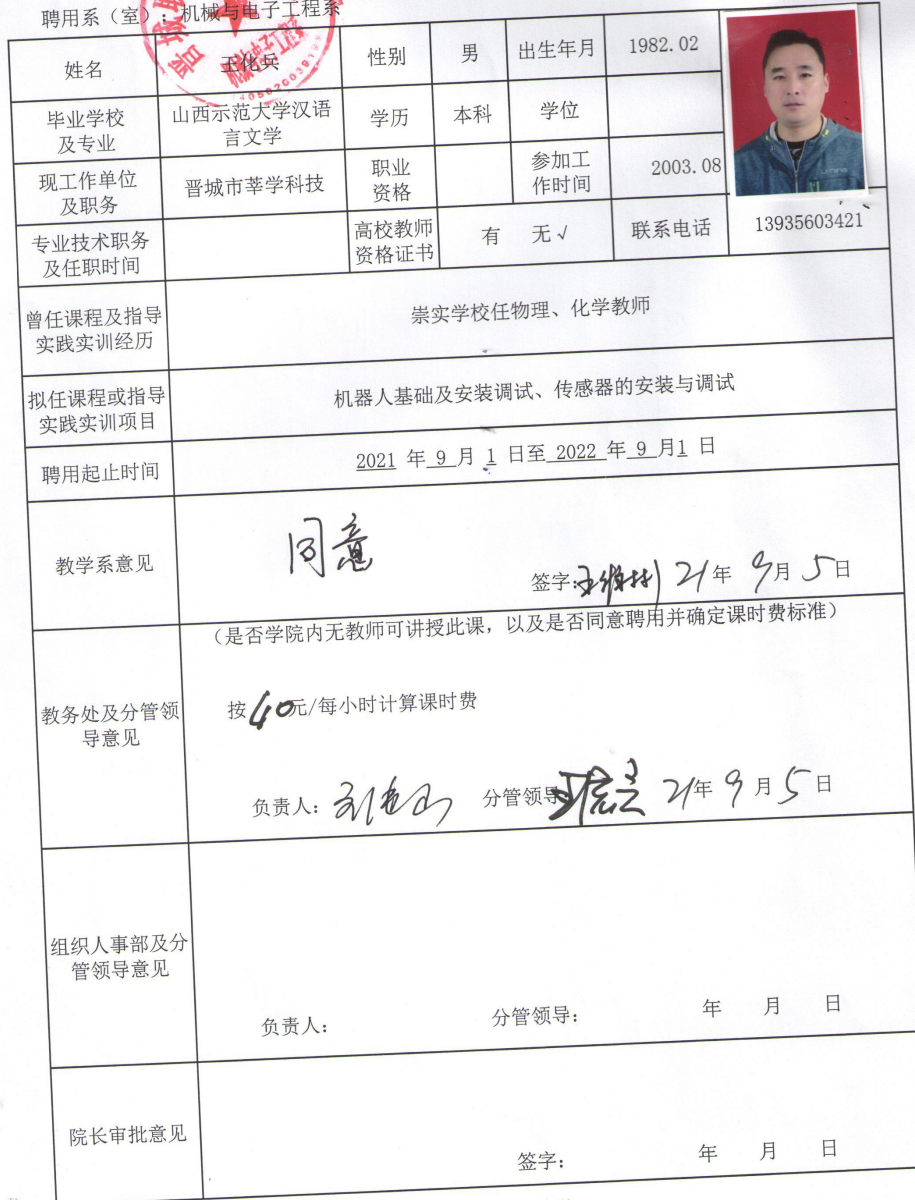 聘用系（室）：机械与电子工程系
姓名 王化兵 性别 男 出生年月 1982.02
毕业学校及专业 山西示范大学汉语言文学 学历 本科 学位
现工作单位及职务 晋城市莘学科技 职业资格 参加工作时间 2003.08
专业技术职务及任职时间 高校教师资格证书 有 无√ 联系电话 13935603421
曾任课程及指导实践实训经历 崇实学校任物理、化学教师
拟任课程或指导实践实训项目 机器人基础及安装调试、传感器的安装与调试
聘用起止时间 2021 年 9 月 1 日至 2022 年 9 月1 日
教学系意见 同意
签字: 21年 9月 5日
（是否学院内无教师可讲授此课，以及是否同意聘用并确定课时费标准）
教务处及分管领导意见 按40元/每小时计算课时费
负责人： 分管领导 21年 9月 5日
组织人事部及分管领导意见
负责人： 分管领导： 年 月 日
院长审批意见
签字： 年 月 日